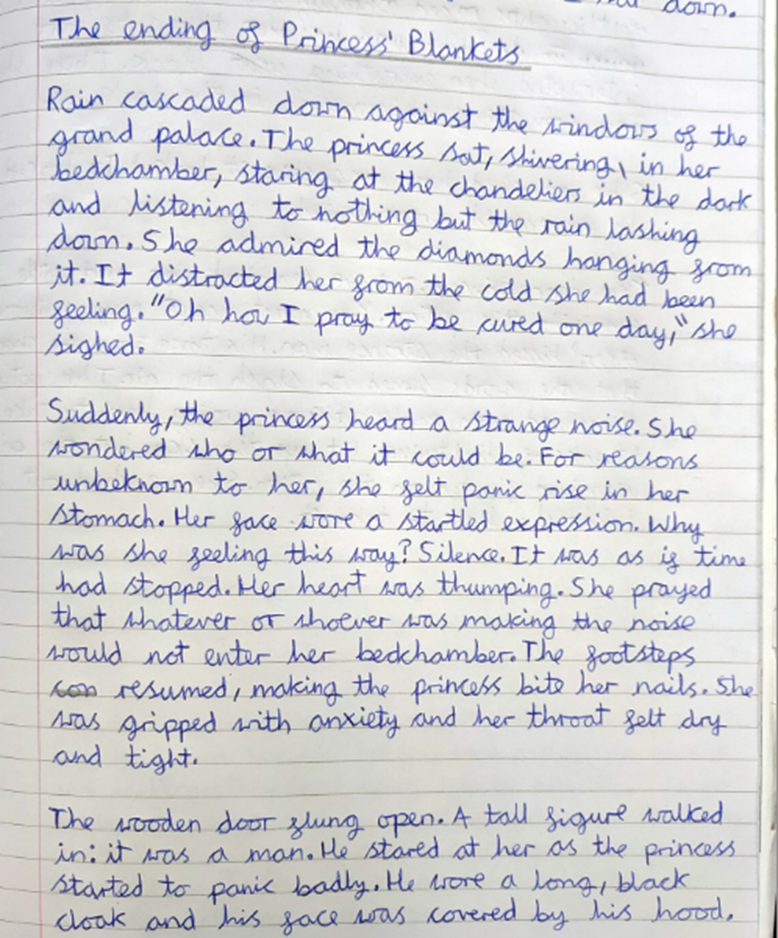 down.
The ending of Princess' Blankets
Rain cascaded down against the windows of the
grand palace. The princess sat, shivering, in her
bedchamber, staring at the chandeliers in the dark
and listening to nothing but the rain lashing
down. She admired the diamonds hanging from
it. It distracted her from the cold she had been
feeling. "Oh how I pray to be cured one day," she
sighed.
Suddenly, the princess heard a strange noise. She
wondered who or what it could be. For reasons
unbeknown to her, she felt panic rise in her
stomach. Her face wore a startled expression. Why
was she feeling this way? Silence. It was as if time
had stopped. Her heart was thumping. She prayed
that whatever or whoever was making the noise
would not enter her bedchamber. The footsteps
resumed, making the princess bite her nails. She
was gripped with anxiety and her throat felt dry
and tight.
The wooden door flung open. A tall figure walked
in: it was a man. He stared at her as the princess
started to panic badly. He wore a long, black
cloak and his face was covered by his hood.